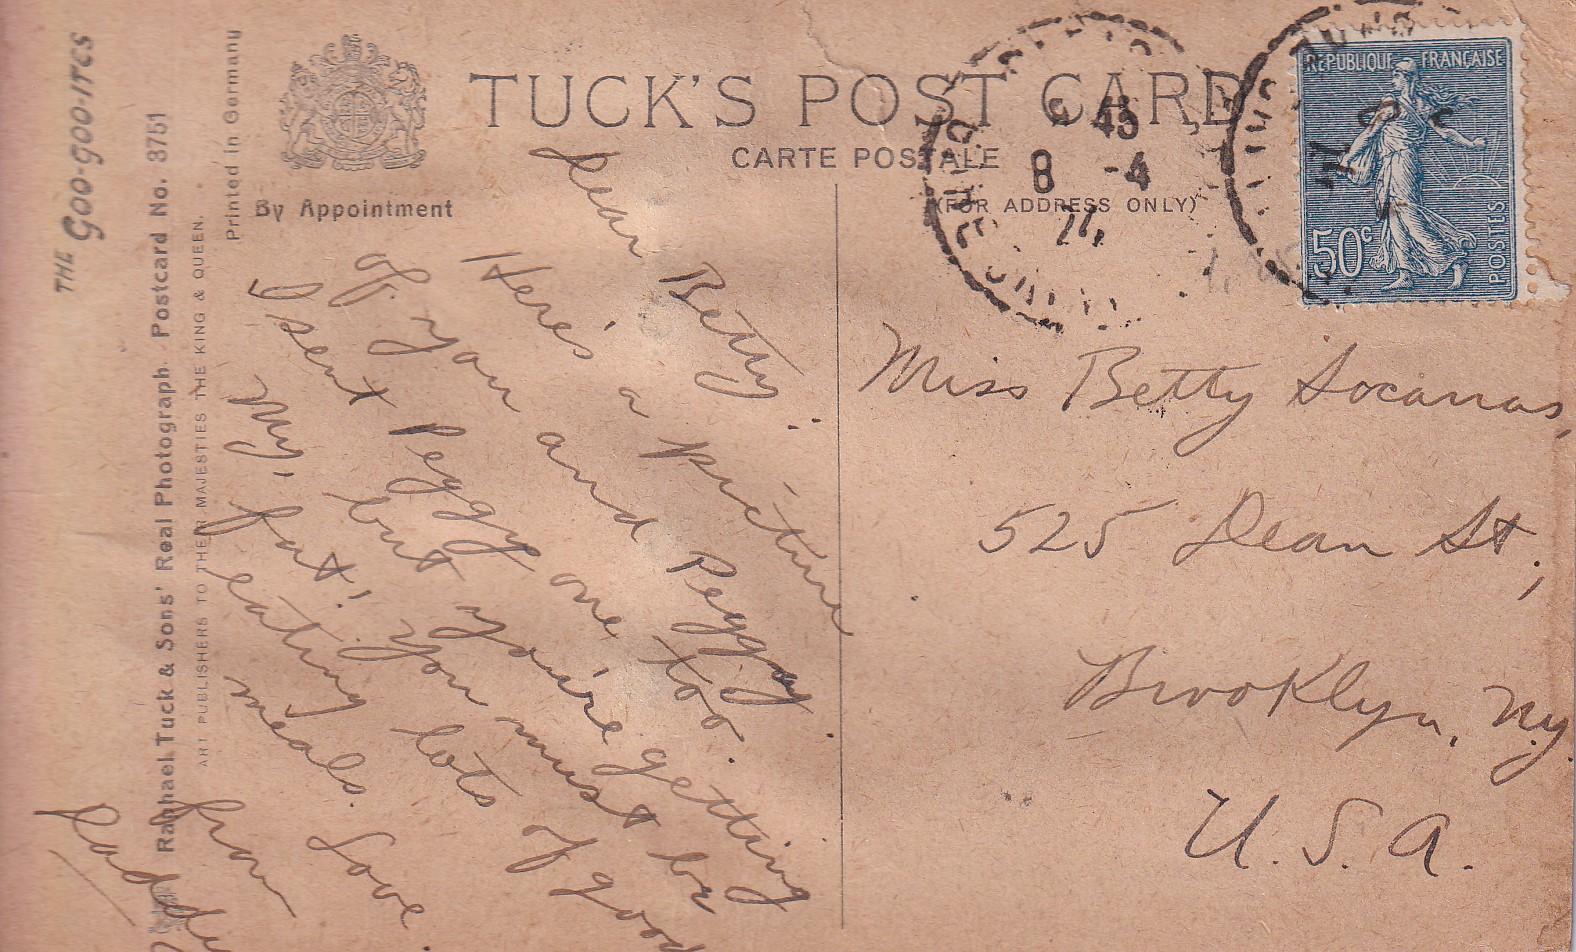 THE GOO-GOO-ITES
Raphael Tuck & Sons' Real Photograph. Postcard No. 3751
ART PUBLISHERS TO THEIR MAJESTIES THE KING & QUEEN.
Printed in Germany
By Appointment
TUCK'S POST CARD
CARTE POSTALE
(FOR ADDRESS ONLY)
45
8 -4
24
REPUBLIQUE FRANÇAISE
50c
POSTES
Dear Betty:
Here's a picture
of you and Peggy
I sent Peggy one too.
My, but you're getting
fat! You must be
eating lots of good
meals. Love
from
Daddy
Miss Betty Socarras,
525 Dean St.,
Brooklyn, N.Y.
U.S.A.